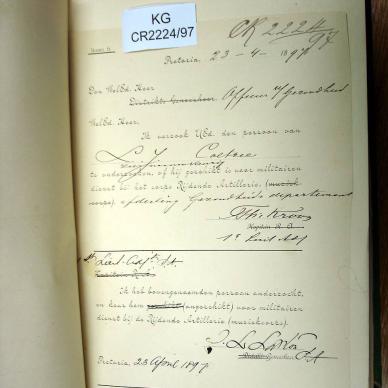 KG
CR2224/97
CR 2224/97
Pretoria, 23 - 4 - 1897
Den WelEd. Heer
Distrikts Geneesheer. Officier v/ Gezondheid
WelEd. Heer,
Ik verzoek UEd. den persoon van
L J Coetzee
te onderzoeken, of hij geschikt is voor militairen
dienst bij het corps Rijdende Artillerie, (muziek-
corps), afdeeling Gezondheids departement
Kapitein R. A.
1e Luit Adj
Luit-Adjt S.A.
Kapitein R. A.
Ik heb bovengenoemden persoon onderzocht,
en keur hem geschikt (ongeschikt) voor militairen
dienst bij de Rijdende Artillerie (muziekcorps).
Distrikt-Geneesheer
Pretoria, 23 April 1897